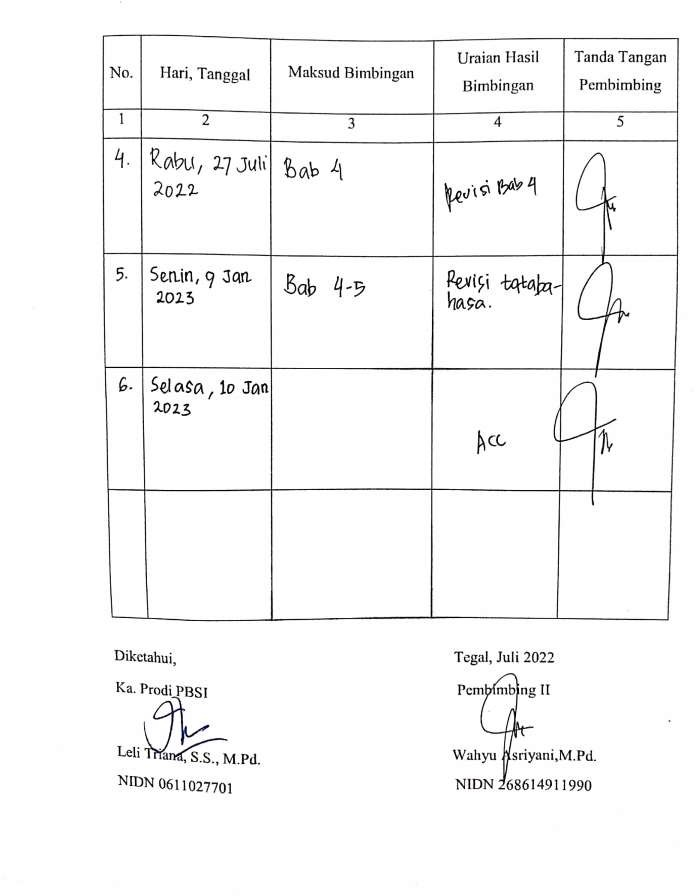 No. Hari, Tanggal Maksud Bimbingan Uraian Hasil Bimbingan Tanda Tangan Pembimbing
1 2 3 4 5
4. Rabu, 27 Juli 2022 Bab 4 Revisi Bab 4
5. Senin, 9 Jan 2023 Bab 4-5 Revisi tataba-hasa.
6. Selasa, 10 Jan 2023 ACC
Diketahui,
Ka. Prodi PBSI
Leli Triana, S.S., M.Pd.
NIDN 0611027701
Tegal, Juli 2022
Pembimbing II
Wahyu Asriyani,M.Pd.
NIDN 268614911990